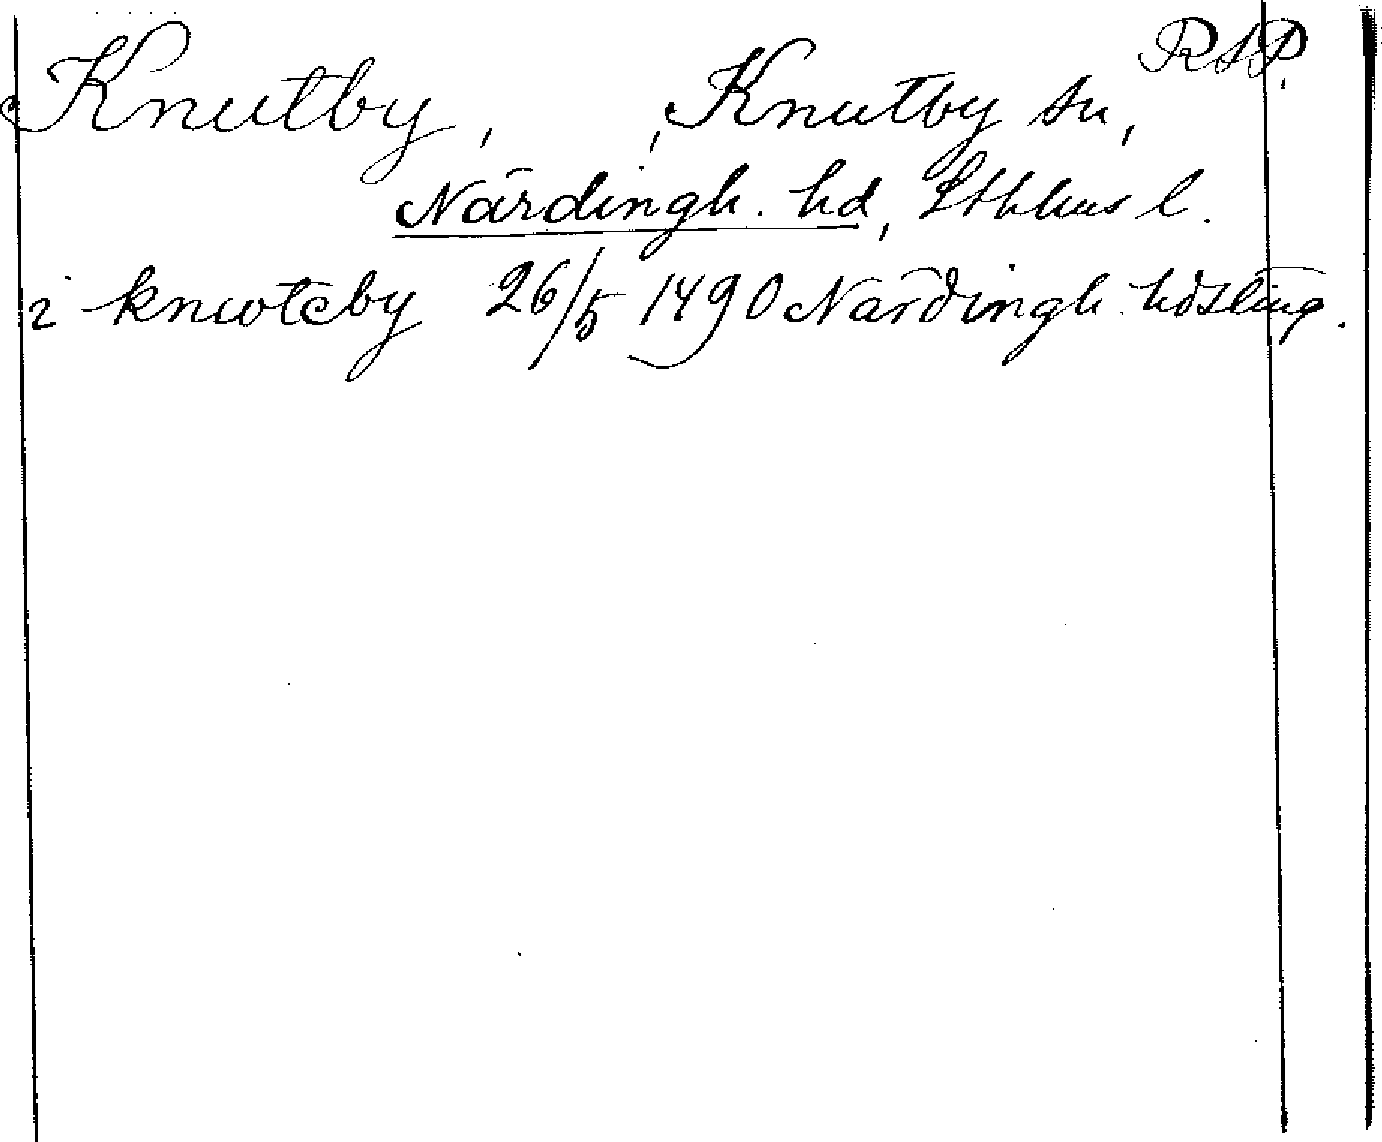 Knutby, , Knutby sn, RAP.
Närdingh. hd, Sthlms l.
i knwteby 26/5 1490 Närdingh. hdsting.